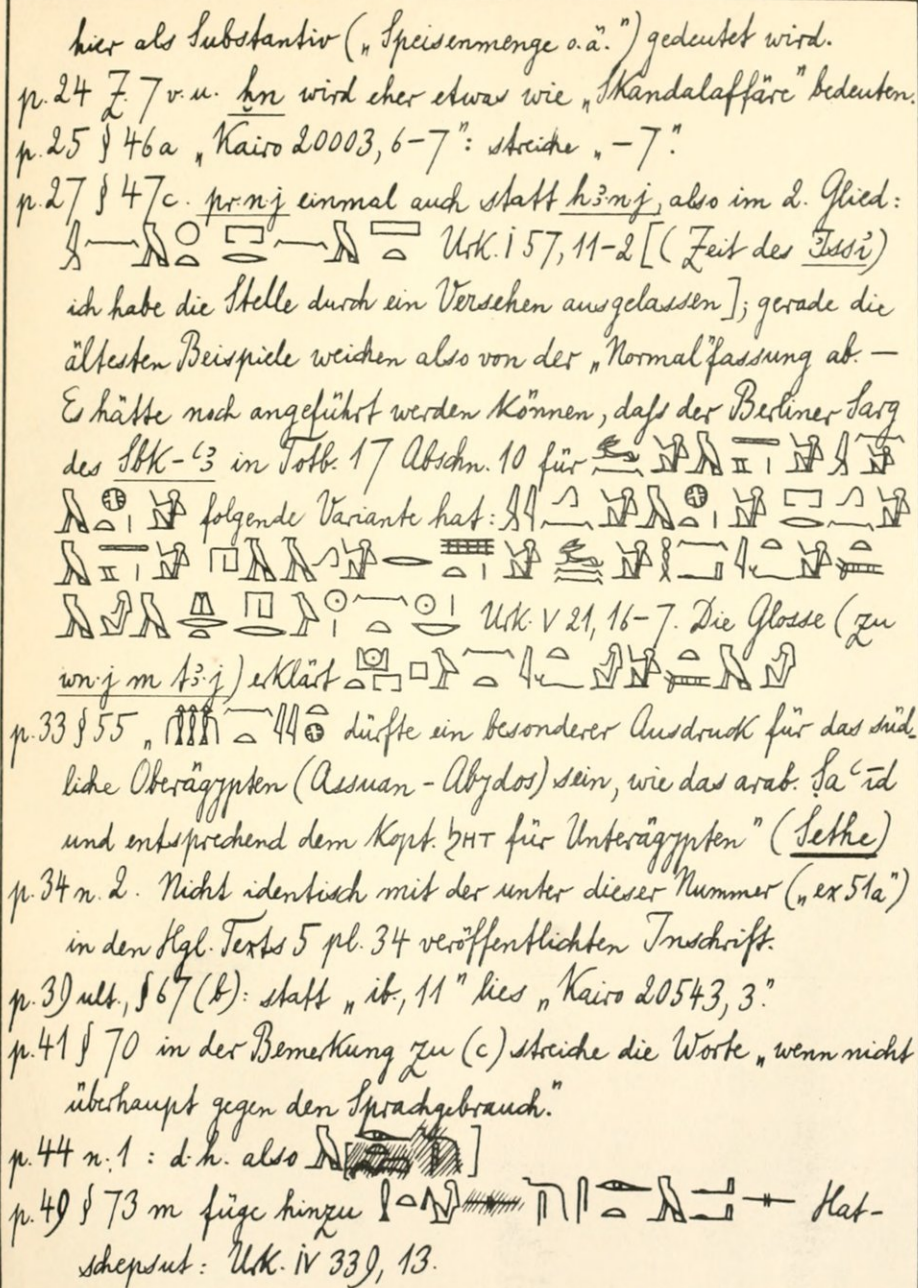 hier als Substantiv („Speisenmenge o.ä.") gedeutet wird.
p. 24 Z. 7 v. u. hn wird eher etwas wie „Skandalaffäre" bedeuten.
p. 25 § 46a „Kairo 20003, 6–7": streiche „–7".
p. 27 § 47c. pr·n·j einmal auch statt hꜣ·n·j, also im 2. Glied:
Urk. I 57, 11–2 [(Zeit des Issi)
ich habe die Stelle durch ein Versehen ausgelassen]; gerade die
ältesten Beispiele weichen also von der „Normal"fassung ab. —
Es hätte noch angeführt werden können, daſs der Berliner Sarg
des Sbk-ꜥꜣ in Totb. 17 Abschn. 10 für
folgende Variante hat:
Urk. V 21, 16–7. Die Glosse (zu
wn·j m tꜣ·j) erklärt
p. 33 § 55 „ dürfte ein besonderer Ausdruck für das süd-
liche Oberägypten (Assuan – Abydos) sein, wie das arab. Ṣaꜥīd
und entsprechend dem kopt. ϩⲏⲧ für Unterägypten" (Sethe)
p. 34 n. 2. Nicht identisch mit der unter dieser Nummer („ex 51a")
in den Hgl. Texts 5 pl. 34 veröffentlichten Inschrift.
p. 39 ult., § 67 (b): statt „ib., 11" lies „Kairo 20543, 3".
p. 41 § 70 in der Bemerkung zu (c) streiche die Worte „wenn nicht
überhaupt gegen den Sprachgebrauch."
p. 44 n. 1 : d. h. also
p. 49 § 73 m füge hinzu Hat-
schepsut: Urk. IV 339, 13.